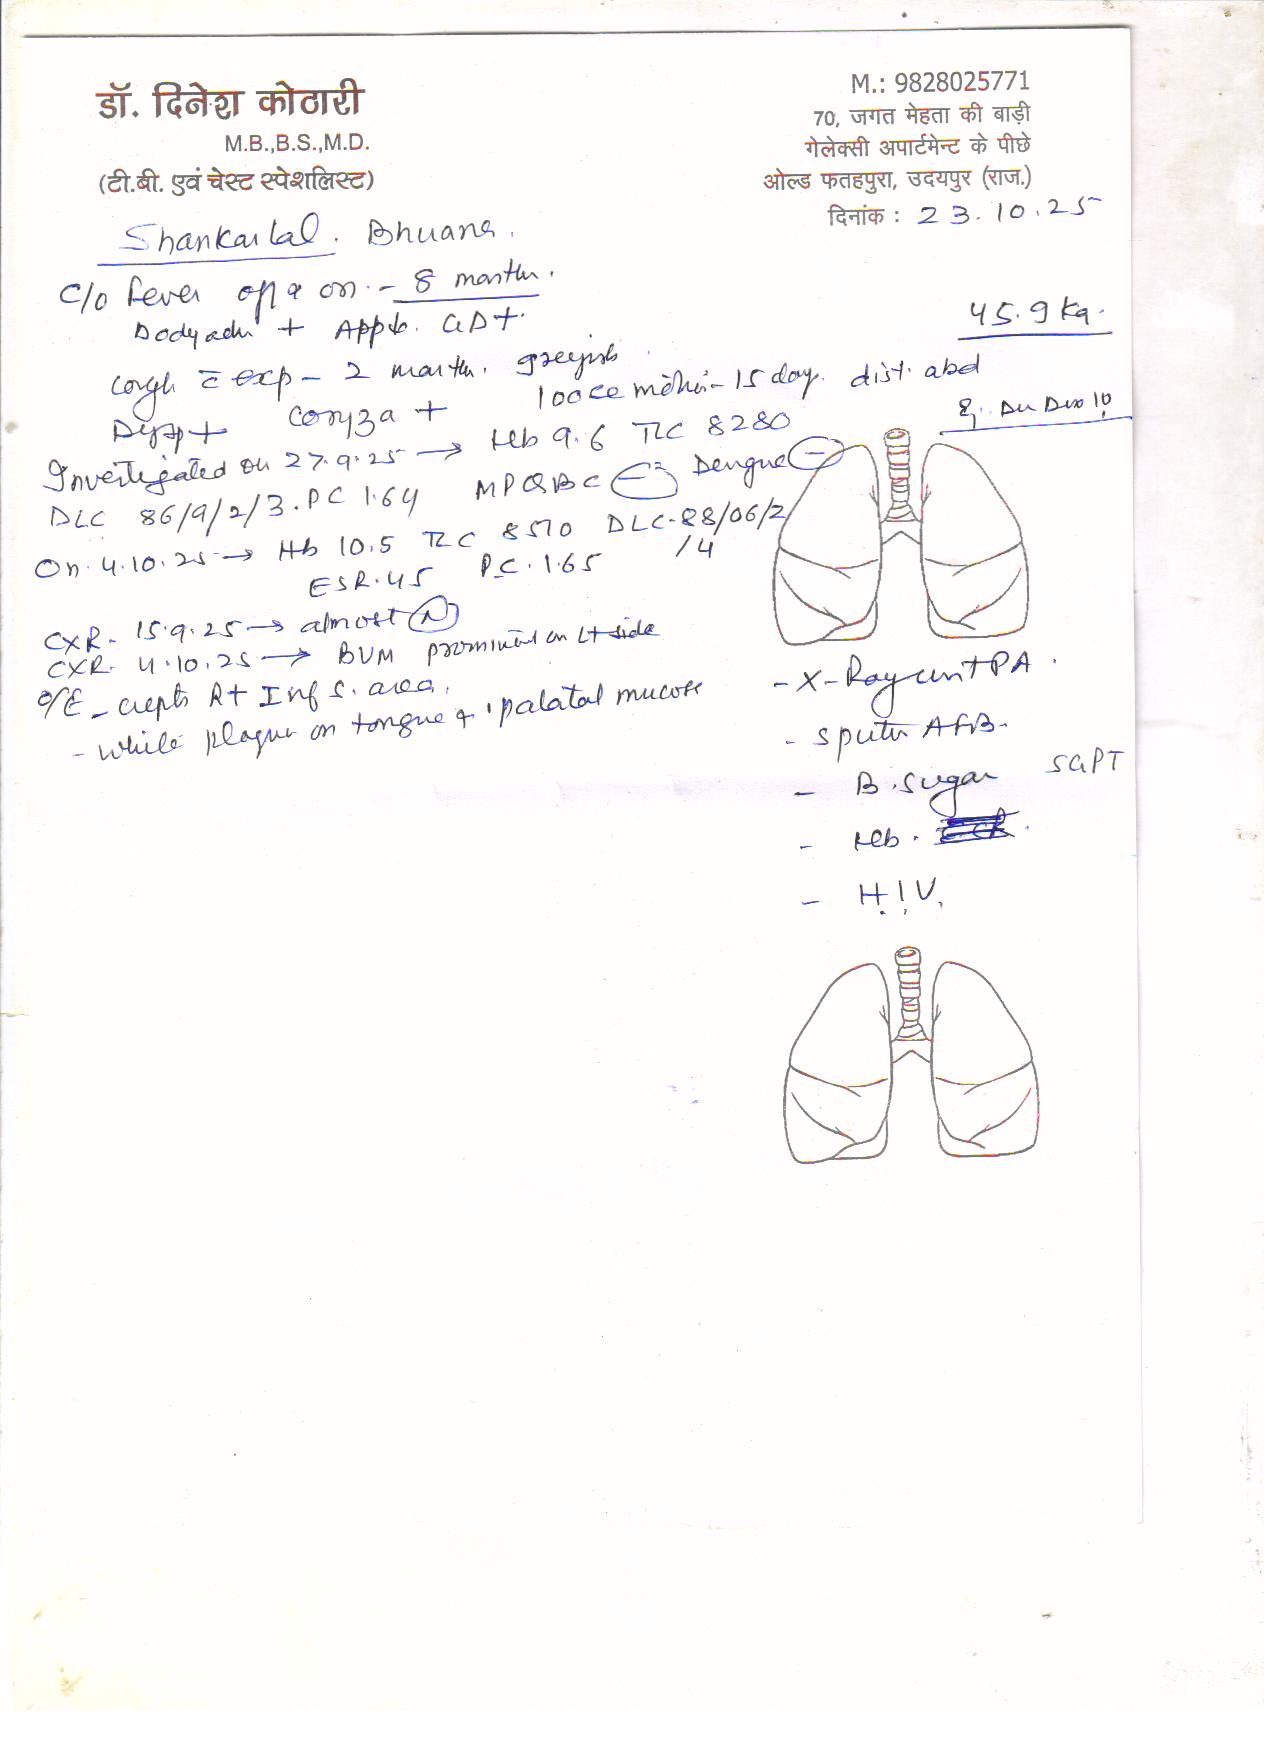 डॉ. दिनेश कोठारी
M.B.,B.S.,M.D.
(टी.बी. एवं चेस्ट स्पेशलिस्ट)
M.: 9828025771
70, जगत मेहता की बाड़ी
गेलेक्सी अपार्टमेन्ट के पीछे
ओल्ड फतहपुरा, उदयपुर (राज.)
दिनांक : 23.10.25
Shankarlal. Bhuana.
C/o fever off & on - 8 month.
45.9 Kg.
Bodyache + App
Cough c exp - 2 month. greyish
100cc - 15 day. dist. abd
Dysp + Coryza +
Investigated on 27.9.25 → Hb 9.6 TLC 8280
DLC 86/9/2/3. PC 1.64 MPQBC (-) Dengue (-)
On. 4.10.25 → Hb 10.5 TLC 8510 DLC-88/06/2/4
ESR. 45 PC. 1.65
CXR- 15.9.25 → almost (N)
CXR- 4.10.25 → BVM prominent on Lt side
O/E - crepts R+ Inf S. area.
- white plaque on tongue & palatal mucosa
- X-Ray chest PA.
- Sputum AFB.
- B. Sugar SGPT
- Hb.
- H.I.V.